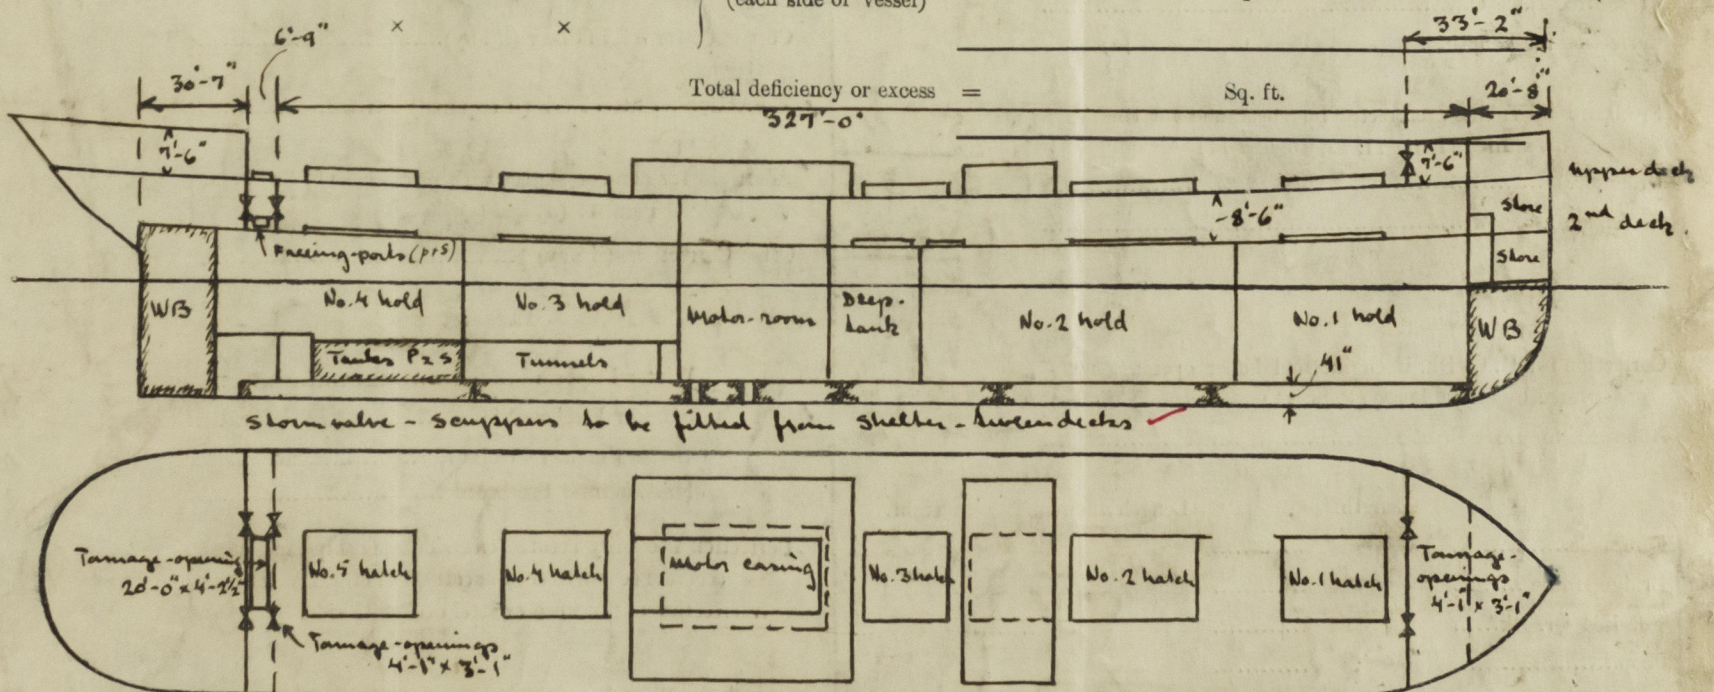 (each side of vessel)
33'-2"
6'-9"
30'-7"
Total deficiency or excess = Sq. ft.
20'-8"
327'-0"
7'-6"
7'-6"
upper deck
8'-6"
Store
2nd deck.
Freeing-ports (P+S)
Store
WB
No.4 hold
No.3 hold
Motor-room
Deep-
tank
No.2 hold
No.1 hold
WB
Tanks P & S
Tunnels
41"
Storm valve - scuppers to be fitted from shelter-tweendecks
Tonnage-opening
20'-0" x 4'-2½"
No.5 hatch
No.4 hatch
Motor casing
No.3 hatch
No.2 hatch
No.1 hatch
Tonnage-
openings
4'-1" x 3'-1"
Tonnage-openings
4'-1" x 3'-1"